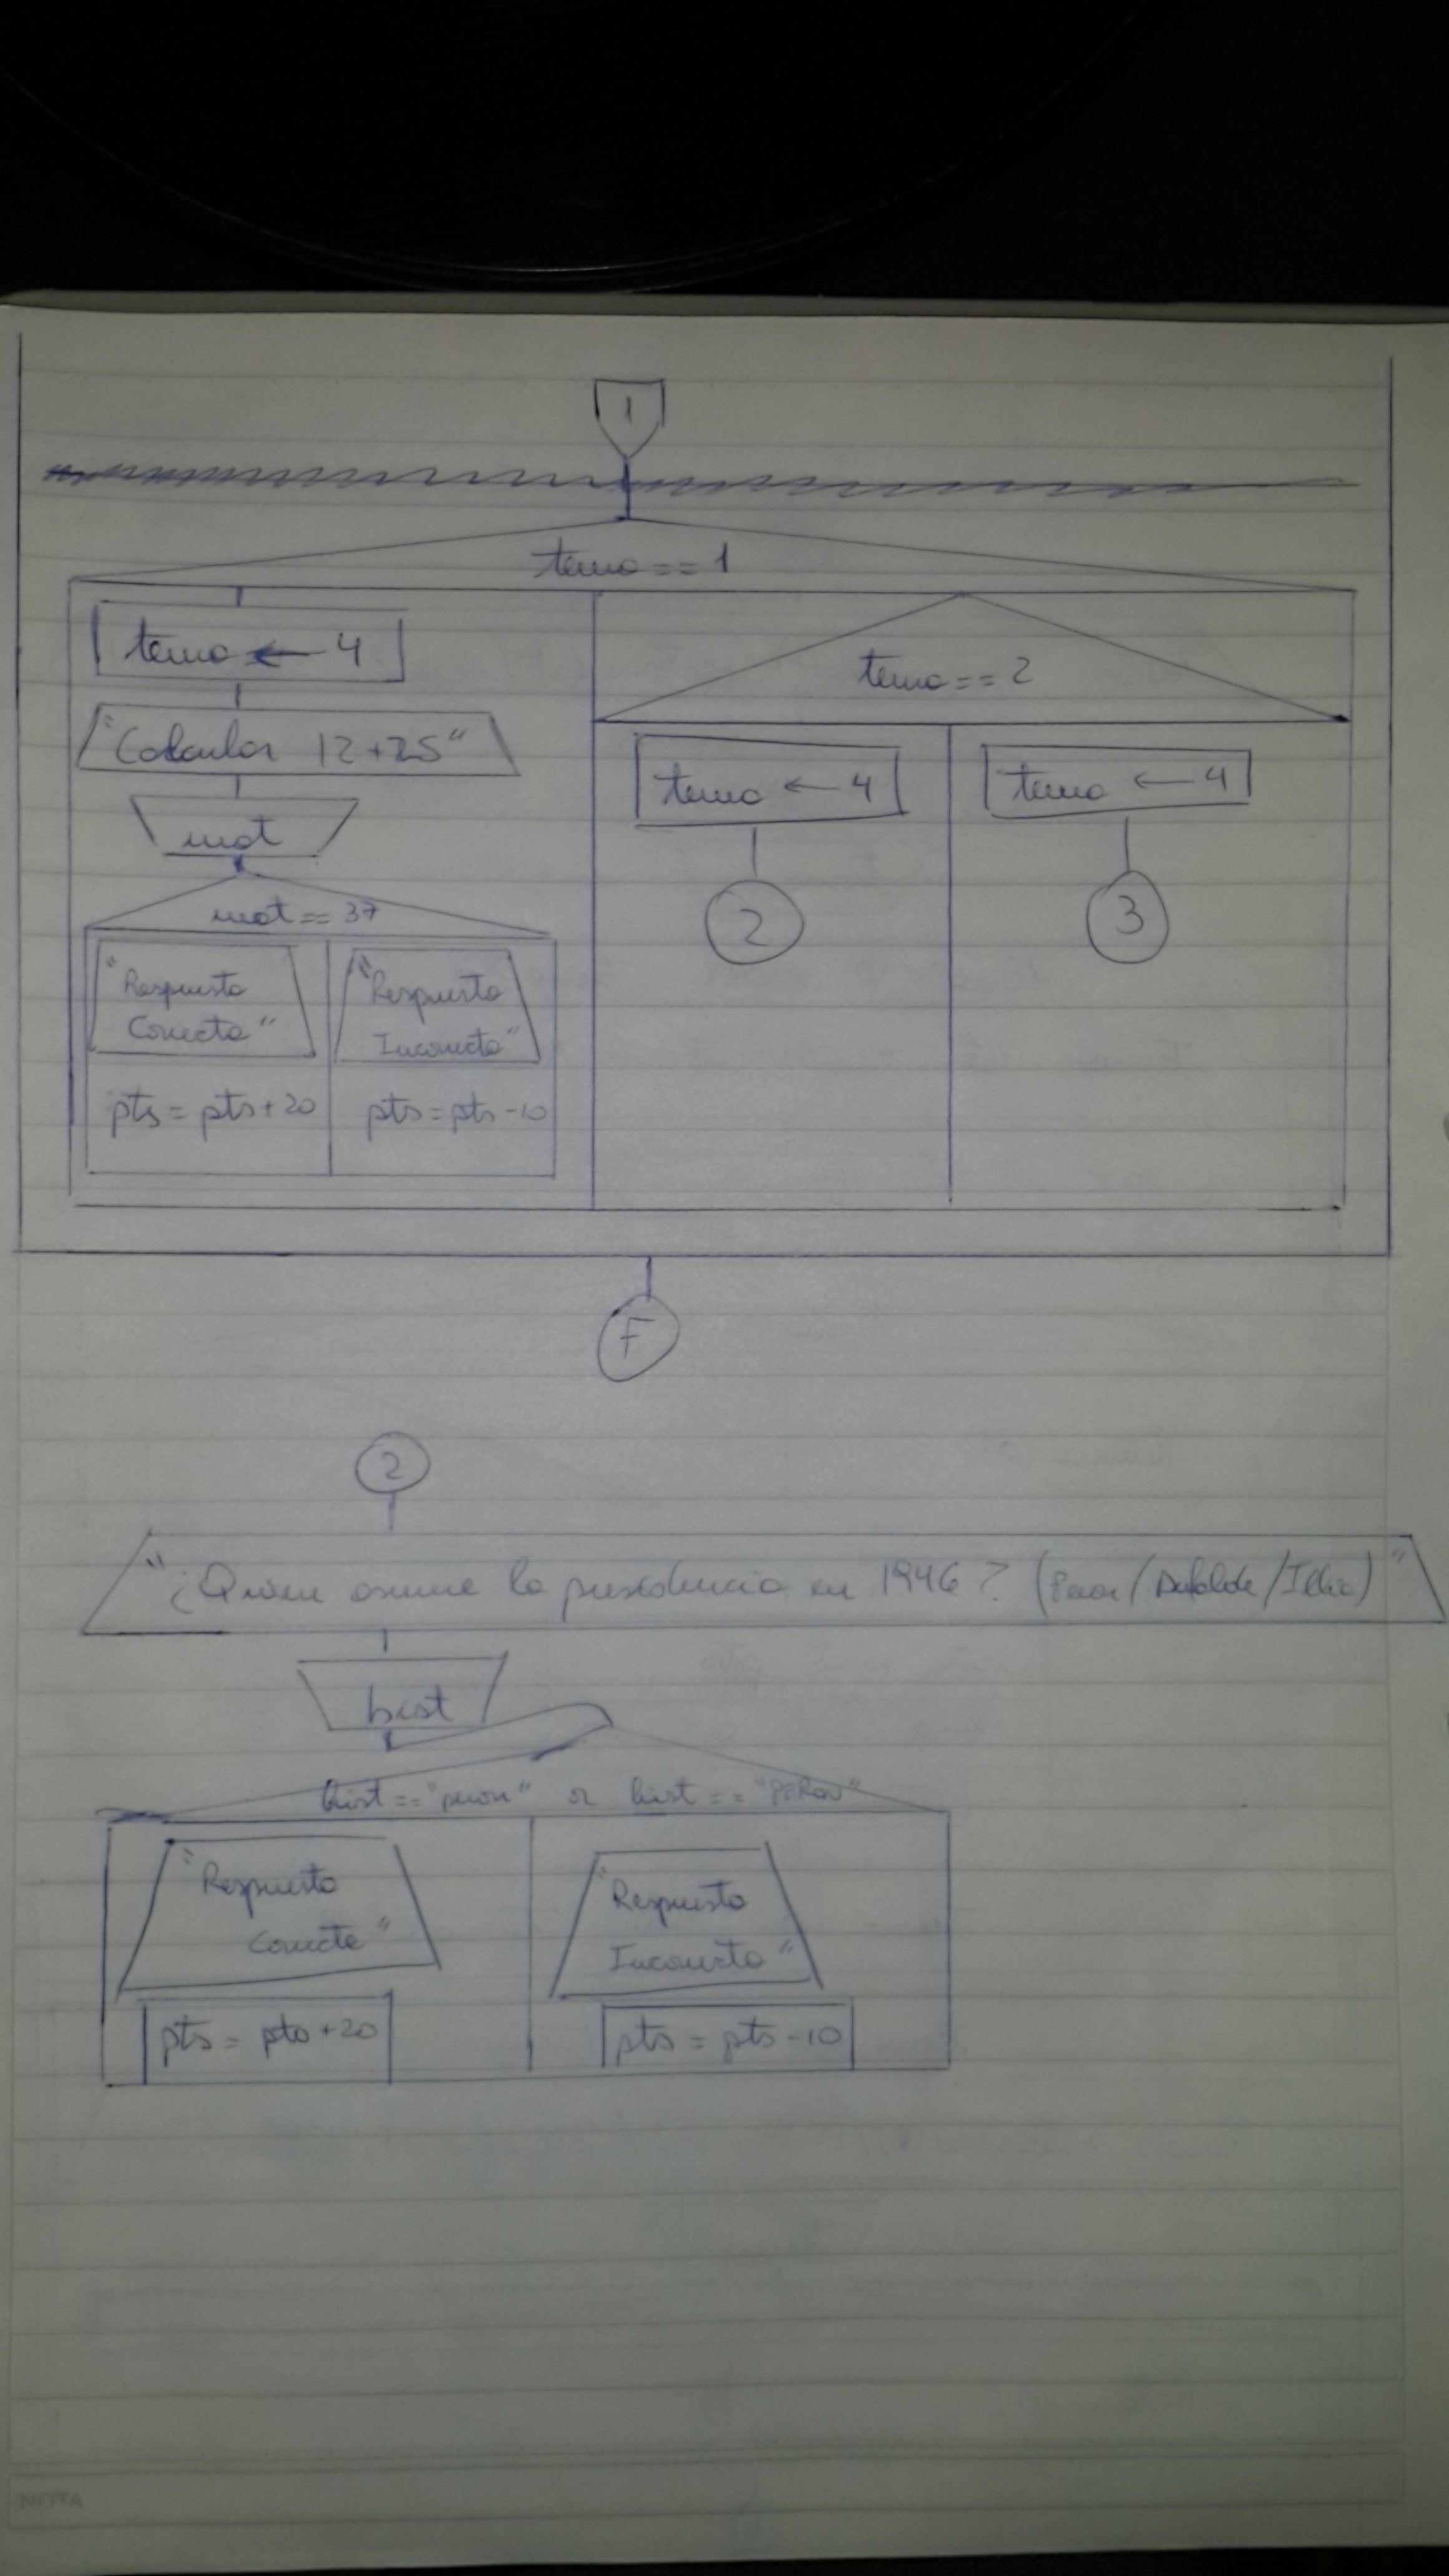 1
tema == 1
tema ← 4
tema == 2
"Calcular 12+25"
tema ← 4
tema ← 4
mat
2
3
mat == 37
"Respuesta
Correcta"
"Respuesta
Incorrecta"
pts = pts+20
pts = pts-10
F
2
"¿Quien asume la presidencia en 1946? (Peron/Duhalde/Illia)"
hist
hist == "peron" or hist == "PERON"
"Respuesta
Correcta"
"Respuesta
Incorrecta"
pts = pts+20
pts = pts-10
NOTA